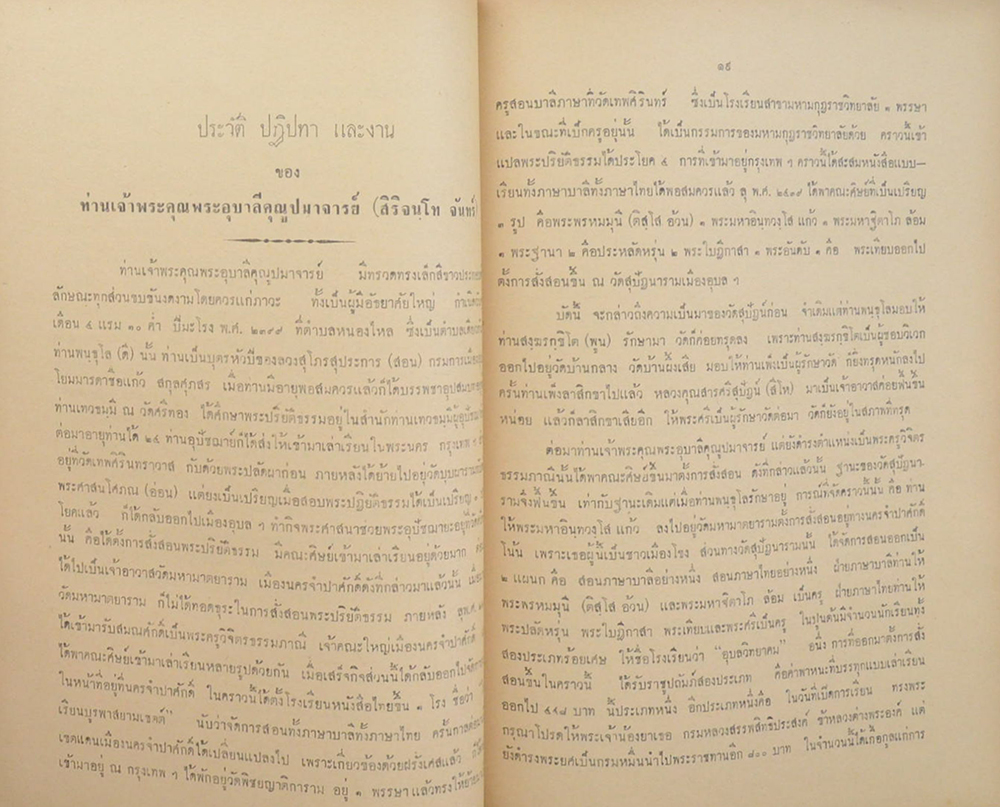 ประวัติ ปฏิปทา และงาน
ของ
ท่านเจ้าพระคุณพระอุบาลีคุณูปมาจารย์ (สิริจนฺโท จันทร์)
ท่านเจ้าพระคุณพระอุบาลีคุณูปมาจารย์ มีทรวดทรงเล็กสีขาวประ
ลักษณะทุกส่วนขบขันงดงามโดยควรแก่ภาวะ ทั้งเป็นผู้มีอัชยาศัยใหญ่ กำเนิด
เดือน ๔ แรม ๑๐ ค่ำ ปีมะโรง พ.ศ. ๒๓๙๙ ที่ตำบลหนองไหล ซึ่งเป็นตำบล
ท่านพนฺธุโล (ดี) นั้น ท่านเป็นบุตรหัวปีของหลวงสุโภรสุประการ (สอน) กรมการเมือง
โยมมารดาชื่อแก้ว สกุลศุภสร เมื่อท่านมีอายุพอสมควรแล้วก็ได้บรรพชาอุปสมบท
ท่านเทวธมฺมี ณ วัดศรีทอง ได้ศึกษาพระปริยัติธรรมอยู่ในสำนักท่านเทวธมฺมีผู้อุปัชฌาย์
ต่อมาอายุท่านได้ ๒๔ ท่านอุปัชฌาย์ก็ได้ส่งให้เข้ามาเล่าเรียนในพระนคร กรุงเทพ ฯ
อยู่ที่วัดเทพศิรินทราวาส กับด้วยพระปลัดผาก่อน ภายหลังได้ย้ายไปอยู่วัดบุปผาราม
พระศาสนโศภณ (อ่อน) แต่ยังเป็นเปรียญเมื่อสอบพระปฏิยัติธรรมได้เป็นเปรียญ
โยคแล้ว ก็ได้กลับออกไปเมืองอุบล ฯ ทำกิจพระศาสนาช่วยพระอุปัชฌายะอยู่ที่วัด
นั้น คือได้ตั้งการสั่งสอนพระปริยัติธรรม มีคณะศิษย์เข้ามาเล่าเรียนอยู่ด้วยมาก
ได้ไปเป็นเจ้าอาวาสวัดมหามาตยาราม เมืองนครจำปาศักดิ์ดังที่กล่าวมาแล้วนั้น เมื่อ
วัดมหามาตยาราม ก็ไม่ได้ทอดธุระในการสั่งสอนพระปริยัติธรรม ภายหลัง ลุพ.ศ.
ได้เข้ามารับสมณศักดิ์เป็นพระครูวิจิตรธรรมภาณี เจ้าคณะใหญ่เมืองนครจำปาศักดิ์
ได้พาคณะศิษย์เข้ามาเล่าเรียนหลายรูปด้วยกัน เมื่อเสร็จกิจส่วนนี้ได้กลับออกไป
ในหน้าที่อยู่ที่นครจำปาศักดิ์ ในคราวนี้ได้ตั้งโรงเรียนหนังสือไทยขึ้น ๑ โรง ชื่อว่า
เรียนบุรพาสยามเขตต์” นับว่าจัดการสอนทั้งภาษาบาลีทั้งภาษาไทย ครั้นกาล
เขตแดนเมืองนครจำปาศักดิ์ได้เปลี่ยนแปลงไป เพราะเกี่ยวข้องด้วยฝรั่งเศสแล้ว
เข้ามาอยู่ ณ กรุงเทพ ฯ ได้พักอยู่วัดพิชยญาติการาม อยู่ ๑ พรรษา แล้วทรงให้
๑๙
ครูสอนบาลีภาษาที่วัดเทพศิรินทร์ ซึ่งเป็นโรงเรียนสาขามหามกุฎราชวิทยาลัย ๑ พรรษา
และในขณะที่เป็นครูอยู่นั้น ได้เป็นกรรมการของมหามกุฎราชวิทยาลัยด้วย คราวนี้เข้า
แปลพระปริยัติธรรมได้ประโยค ๔ การที่เข้ามาอยู่กรุงเทพ ฯ คราวนี้ได้สะสมหนังสือแบบ—
เรียนทั้งภาษาบาลีทั้งภาษาไทยได้พอสมควรแล้ว ลุ พ.ศ. ๒๔๓๙ ได้พาคณะศิษย์ที่เป็นเปรียญ
๓ รูป คือพระพรหมมุนี (ติสฺโส อ้วน) ๑ พระมหาอินฺทวงฺโส แก้ว ๑ พระมหาฐิตาโภ ล้อม
๑ พระฐานา ๒ คือประหลัดหรุ่น ๒ พระใบฎีกาสา ๑ พระอันดับ ๑ คือ พระเทียบออกไป
ตั้งการสั่งสอนขึ้น ณ วัดสุปัฏนารามเมืองอุบล ฯ
บัดนี้ จะกล่าวถึงความเป็นมาของวัดสุปัฏน์ก่อน จำเดิมแต่ท่านพนฺธุโลมอบให้
ท่านสงฺฆรกฺขิโต (พูน) รักษามา วัดก็ค่อยทรุดลง เพราะท่านสงฺฆรกฺขิโตเป็นผู้ชอบวิเวก
ออกไปอยู่วัดบ้านกลาง วัดบ้านผึ้งเสีย มอบให้ท่านเพ็งเป็นผู้รักษาวัด ก็ยิ่งทรุดหนักลงไป
ครั้นท่านเพ็งลาสิกขาไปแล้ว หลวงคุณสารศรีสุปัฏน์ (สีโห) มาเป็นเจ้าอาวาสค่อยฟื้นขึ้น
หน่อย แล้วก็ลาสิกขาเสียอีก ให้พระศรีเป็นผู้รักษาวัดต่อมา วัดก็ยังอยู่ในสภาพที่ทรุด
ต่อมาท่านเจ้าพระคุณพระอุบาลีคุณูปมาจารย์ แต่ยังดำรงตำแหน่งเป็นพระครูวิจิตร
ธรรมภาณีนั้นได้พาคณะศิษย์ขึ้นมาตั้งการสั่งสอน ดังที่กล่าวแล้วนั้น ฐานะของวัดสุปัฏนา-
รามจึงฟื้นขึ้น เท่ากับฐานะเดิมแต่เมื่อท่านพนฺธุโลรักษาอยู่ การณ์ที่จัดคราวนั้นนั้น คือ ท่าน
ให้พระมหาอินฺทวงฺโส แก้ว ลงไปอยู่วัดมหามาตยารามตั้งการสั่งสอนอยู่ทางนครจำปาศักดิ์
โน้น เพราะเธอผู้นั้นเป็นชาวเมืองโขง ส่วนทางวัดสุปัฏนารามนั้น ได้จัดการสอนออกเป็น
๒ แผนก คือ สอนภาษาบาลีอย่างหนึ่ง สอนภาษาไทยอย่างหนึ่ง ฝ่ายภาษาบาลีท่านให้
พระพรหมมุนี (ติสฺโส อ้วน) และพระมหาฐิตาโภ ล้อม เป็นครู ฝ่ายภาษาไทยท่านให้
พระปลัดหรุ่น พระใบฎีกาสา พระเทียบและพระศรีเป็นครู ในปุนต้นมีจำนวนนักเรียนทั้ง
สองประเภทร้อยเศษ ให้ชื่อโรงเรียนว่า “อุบลวิทยาคม” อนึ่ง การที่ออกมาตั้งการสั่ง
สอนขึ้นในคราวนี้ ได้รับราชูปถัมภ์สองประเภท คือค่าพาหนะที่บรรทุกแบบเล่าเรียน
ออกไป ๔๔๘ บาท นี้ประเภทหนึ่ง อีกประเภทหนึ่งคือ ในวันที่เปิดการเรียน ทรงพระ
กรุณาโปรดให้พระเจ้าน้องยาเธอ กรมหลวงสรรพสิทธิประสงค์ ข้าหลวงต่างพระองค์ แต่
ยังดำรงพระยศเป็นกรมหมื่นนำไปพระราชทานอีก ๘๐๐ บาท ในจำนวนนี้ได้เกื้อกูลแก่การ